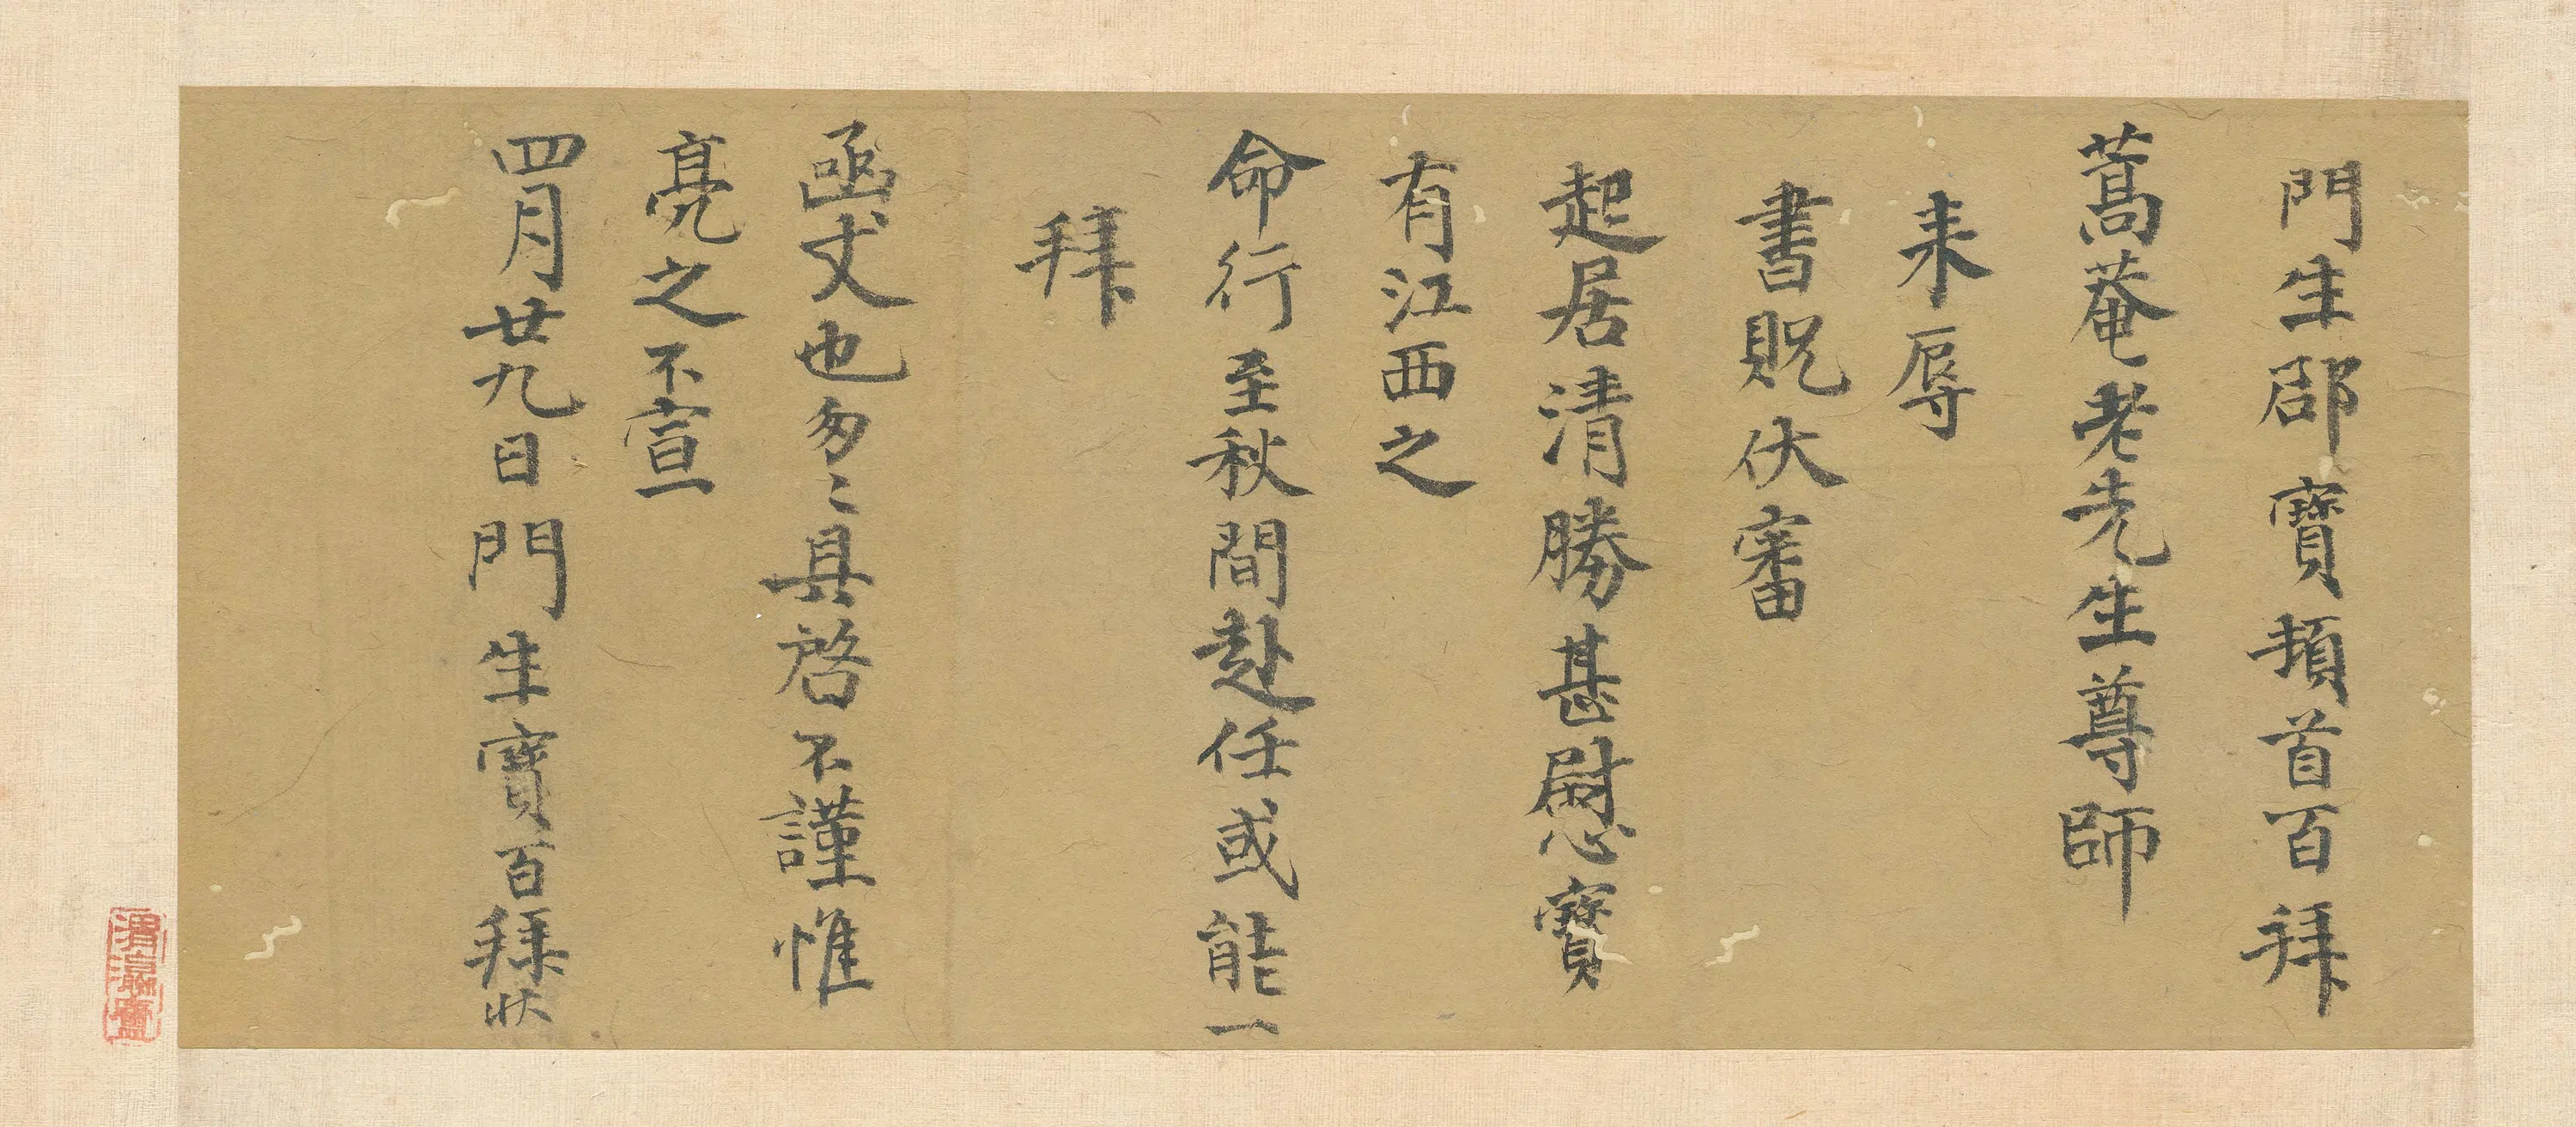 門生邵寶頓首百拜
蒿菴老先生尊師
来辱
書貺伏審
起居清勝甚慰寶
有江西之
命行至秋間赴任或能一
拜
函丈也匆〻具啓不謹惟
亮之不宣
四月廿九日門生寶百拜狀